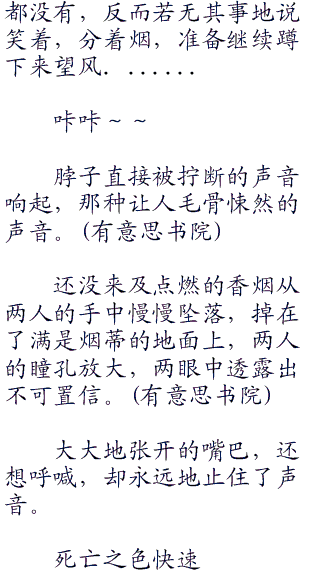 都没有，反而若无其事地说
笑着，分着烟，准备继续蹲
下来望风．．．．．．
咔咔～～
脖子直接被拧断的声音
响起，那种让人毛骨悚然的
声音。（有意思书院）
还没来及点燃的香烟从
两人的手中慢慢坠落，掉在
了满是烟蒂的地面上，两人
的瞳孔放大，两眼中透露出
不可置信。（有意思书院）
大大地张开的嘴巴，还
想呼喊，却永远地止住了声
音。
死亡之色快速